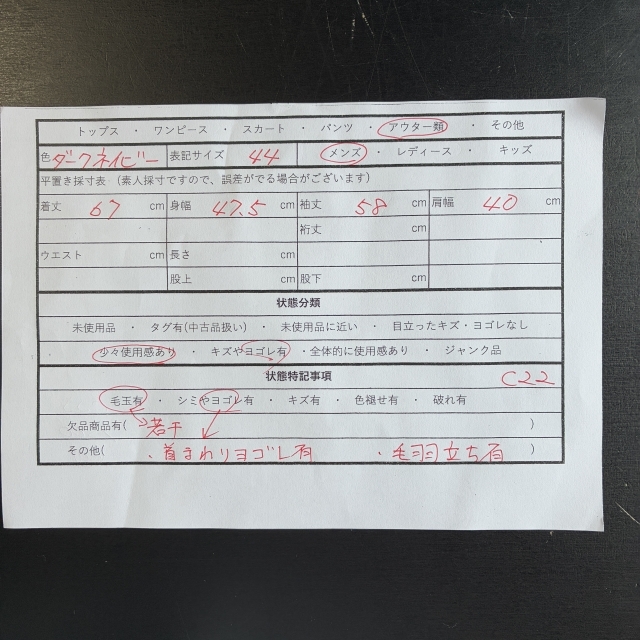 トップス ・ ワンピース ・ スカート ・ パンツ ・ アウター類 ・ その他
色 ダークネイビー 表記サイズ 44 メンズ ・ レディース ・ キッズ
平置き採寸表 (素人採寸ですので、誤差がでる場合がございます)
着丈 67 cm 身幅 47.5 cm 袖丈 58 cm 肩幅 40 cm
裄丈 cm
ウエスト cm 長さ cm
股上 cm 股下 cm
状態分類
未使用品 ・ タグ有(中古品扱い) ・ 未使用品に近い ・ 目立ったキズ・ヨゴレなし
・ 少々使用感あり ・ キズやヨゴレ有 ・全体的に使用感あり ・ ジャンク品
状態特記事項 C22
毛玉有 ・ シミやヨゴレ有 ・ キズ有 ・ 色褪せ有 ・ 破れ有
欠品商品有( 若干 )
その他( ・首まわりヨゴレ有 ・毛羽立ち有 )